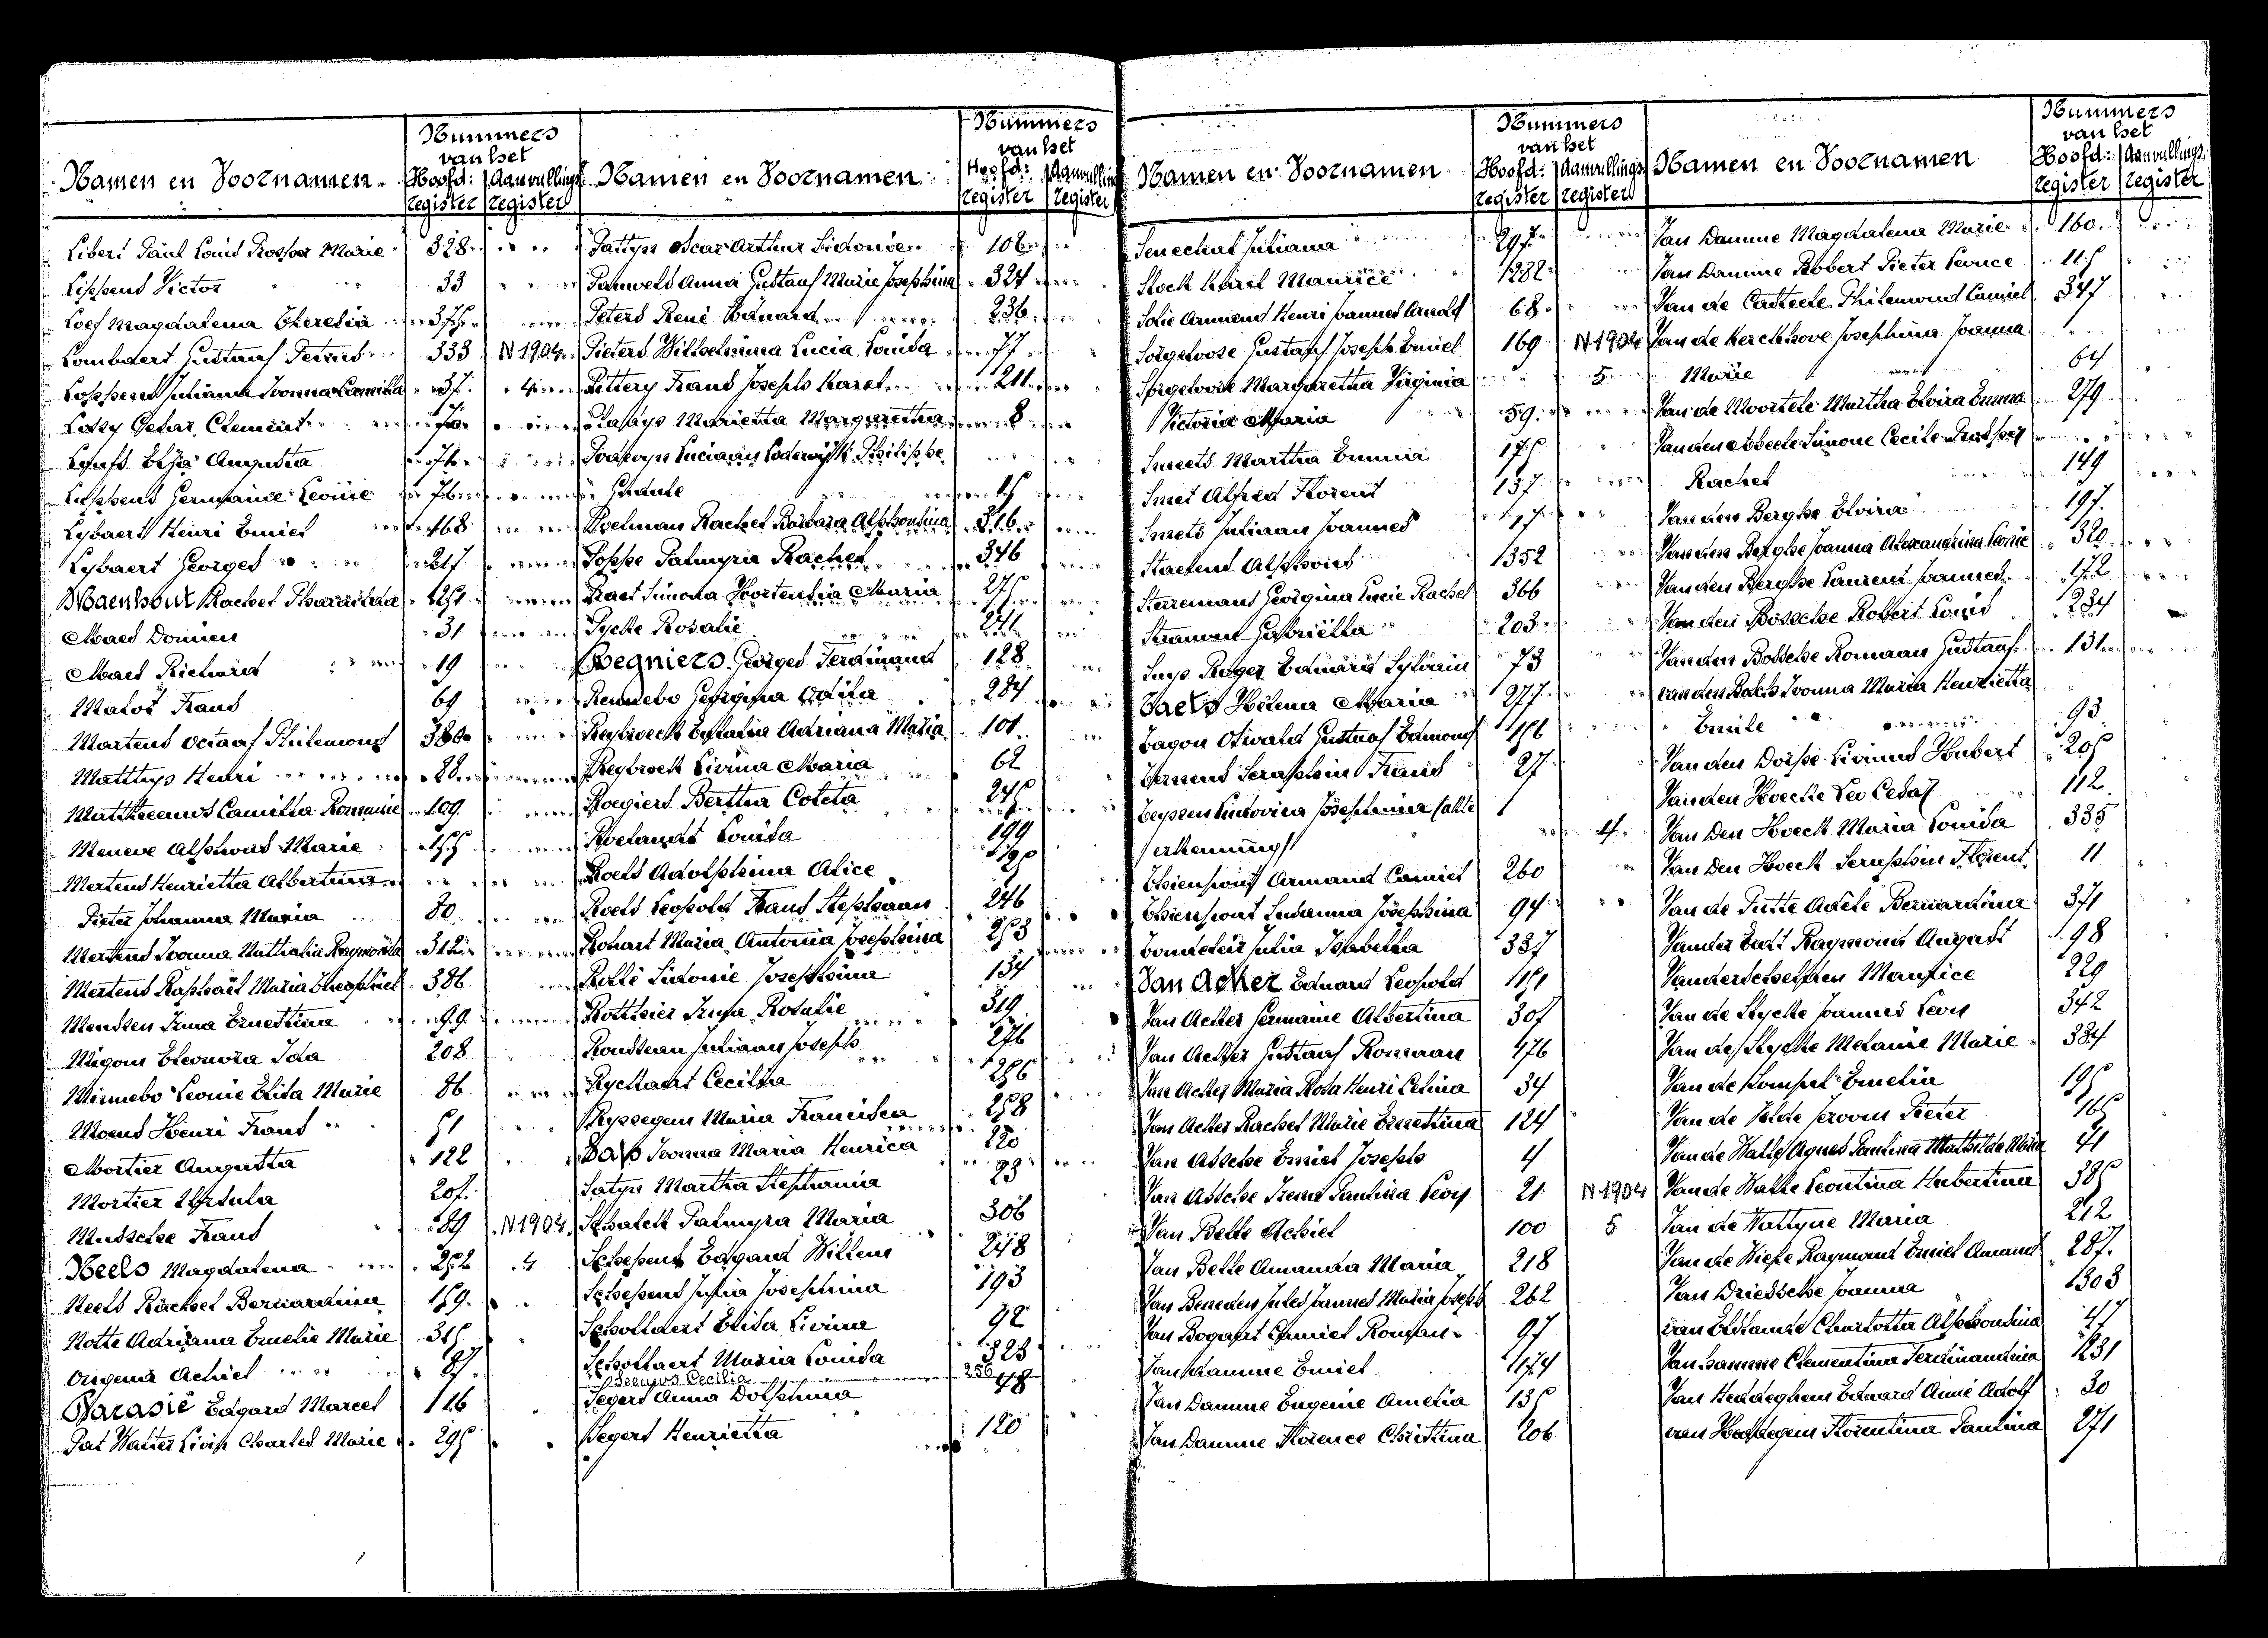 Namen en Voornamen.
Nummers
van het
Hoofd: Aanvullings
register register
Libert Paul Louis Prosper Marie 328
Lippens Victor 33
Loef Magdalena Theresia
Lombaert Gustaaf Petrus 333 N 1904
Loppens Juliana Ivonna Camilla 4
Lossy Cesar Clement
Augusta
Germanie Leonie
Lybaert Henri Emiel 168
Lybaert Georges 217
Maenhout Rachel
Maes 31
Maes Richard 19
Malos Frans 69
Martens Octaaf Philemond 380
Matthys Henri 22
Mattheeuws Camilla Romanie 109
Meneve Alphons Marie
Mertens Henrietta Albertina
Pieter Johanna Maria 80
Mertens Ivonna Nathalia Raymonda
Mertens Raphaël Maria Theophiel 386
Irma Ernestina 99
Migom Eleonora Ida 208
Minnebo Leonie Elisa Marie 86
Moens Henri Frans 51
Mortier Augusta 122
Mortier Ursula 205
Musschee Frans 89 N 1904
Neels Magdalena 252 4
Neels Rachel Bernardina 159
Notte Adriana Emelie Marie 315
Origena Achiel
Parasie Edgard Marcel 116
Pat Walter Livin Charles Marie 295
Namen en Voornamen
Nummers
van het
Hoofd: Aanvulling
register register
Pattyn Oscar Arthur Sidonie 106
Pauwels Anna Gustaaf Marie Josephina 324
Peters René Eduard 236
Pieters Wilhelmina Lucia Louisa 77
Pittery Frans Joseph Karel 211
Marietha Margaretha 8
Luciaan Lodewijk Philippe
15
Poelman Rachel Barbara Alphonsina 316
Poppe Palmyria Rachel 346
Praet Simona Hortensia Maria 275
Pycke Rosalie 241
Regniers Georges Ferdinand 128
Rennebo Georgina Odila 284
Reybroeck Eufhalia Adriana Maria 101
Reybroek Livina Maria 62
Roegiers Bertha Coleta 245
Roelandt Louisa 199
Roels Adolphina Alice 190
Roels Leopold Frans Stephaan 246
Rohart Maria Antonia Josephina 253
Rollé Sidonie Josephina 134
Rotthier Irma Rosalie 319
Rousseau Juliaan Joseph 276
Ryckaert Cecilia 286
Ryssegem Maria Francisca 258
Sas Ivonna Maria Henrica 220
Satyn Martha Stephania 23
Schalck Palmyra Maria 306
Schepens Edgard Willem 248
Schepens Julia Josephina 193
Schollaert Elisa Livina 92
Schollaert Maria Louisa 323
Seeuws Cecilia 256
Segers Anna Dolphina 48
Segers Henrietta 120
Namen en Voornamen
Nummers
van het
Hoofd: Aanvullings
register register
Senechal Juliana 297
Slock Karel Maurice 282
Solie Armand Henri Joannes Arnold 68
Sorgeloose Gustaaf Joseph Emiel 169 N 1904
Sorgeloose Margaretha Virginia 5
Victoria Maria 59
Smeets Martha Emma 175
Smet Alfred Florent 137
Smets Juliaan Joannes 17
Staelens Alphons 352
Sterremans Georgina Lucie Rachel 366
Straumen Gabriëlla 203
Suys Roger Eduard Sylvain 73
Taels Helena Maria 277
Tagon Oswald Gustaaf Edmond 156
Temmens Seraphin Frans 27
Teyssen Ludovina Josephina (akte
erkenning) 4
Thienpont Armand Camiel 260
Thienpont Susanna Josephina 94
Tondeleir Julia Isabella 337
Van Acker Eduard Leopold 151
Van Acker Germaine Albertina 305
Van Acker Gustaaf Romaan 176
Van Acker Maria Rosa Henri Celina 34
Van Acker Rachel Marie Ernestina 124
Van Assche Emiel Joseph 4
Van Assche Irena Paulina Leon 21 N 1904
Van Belle Achiel 100 5
Van Belle Amanda Maria 218
Van Beneden Jules Joannes Maria Joseph 262
Van Bogaert Camiel Romaan 97
Van Damme Emiel 174
Van Damme Eugenie Amelia 135
Van Damme Florence Christina 206
Namen en Voornamen
Nummers
van het
Hoofd: Aanvullings.
register register
Van Damme Magdalena Marie 160
Van Damme Robert Pieter Leonce 115
Van de Casteele Philemond Camiel 347
Van de Kerckhove Josephina Joanna
Marie 64
Van de Moortele Martha Elvira Emma 279
Van den Abeele Simone Cecile Prosper
Rachel 149
Van den Berghe Elvira 197
Van den Berghe Joanna Alexandrina Leonie 320
Van den Berghe Laurent Joannes 172
Van den Bossche Robert Louis 234
Van den Bossche Romaan Gustaaf 131
van den Ivonna Maria Henrietta
Emile 93
Van den Dorpe Livinus Hubert 205
Van den Hoecke Leo Cesar 112
Van Den Hoeck Maria Louisa 335
Van Den Hoeck Seraphin Florent 11
Van de Putte Adele Bernardina 371
Vander Eedt Raymond August 98
Vanderschelden Maurice 229
Van de Slycke Joannes Leon 342
Van de Slycke Melanie Marie 334
Van de Sompel Emelia 195
Van de Velde Jeroom Pieter 165
Van de Walle Agnes Paulina Mathilde Maria 41
Van de Walle Leontina Hubertina 385
Van de Wattyne Maria 212
Van de Wiele Raymond Emiel Amand 287
Van Driessche Joanna 303
van Eeckaute Charlotta Alphonsina 47
Van hamme Clementina Ferdinandina 231
Van Heddeghem Eduard Aimé Adolf 30
van Florentina Paulina 271